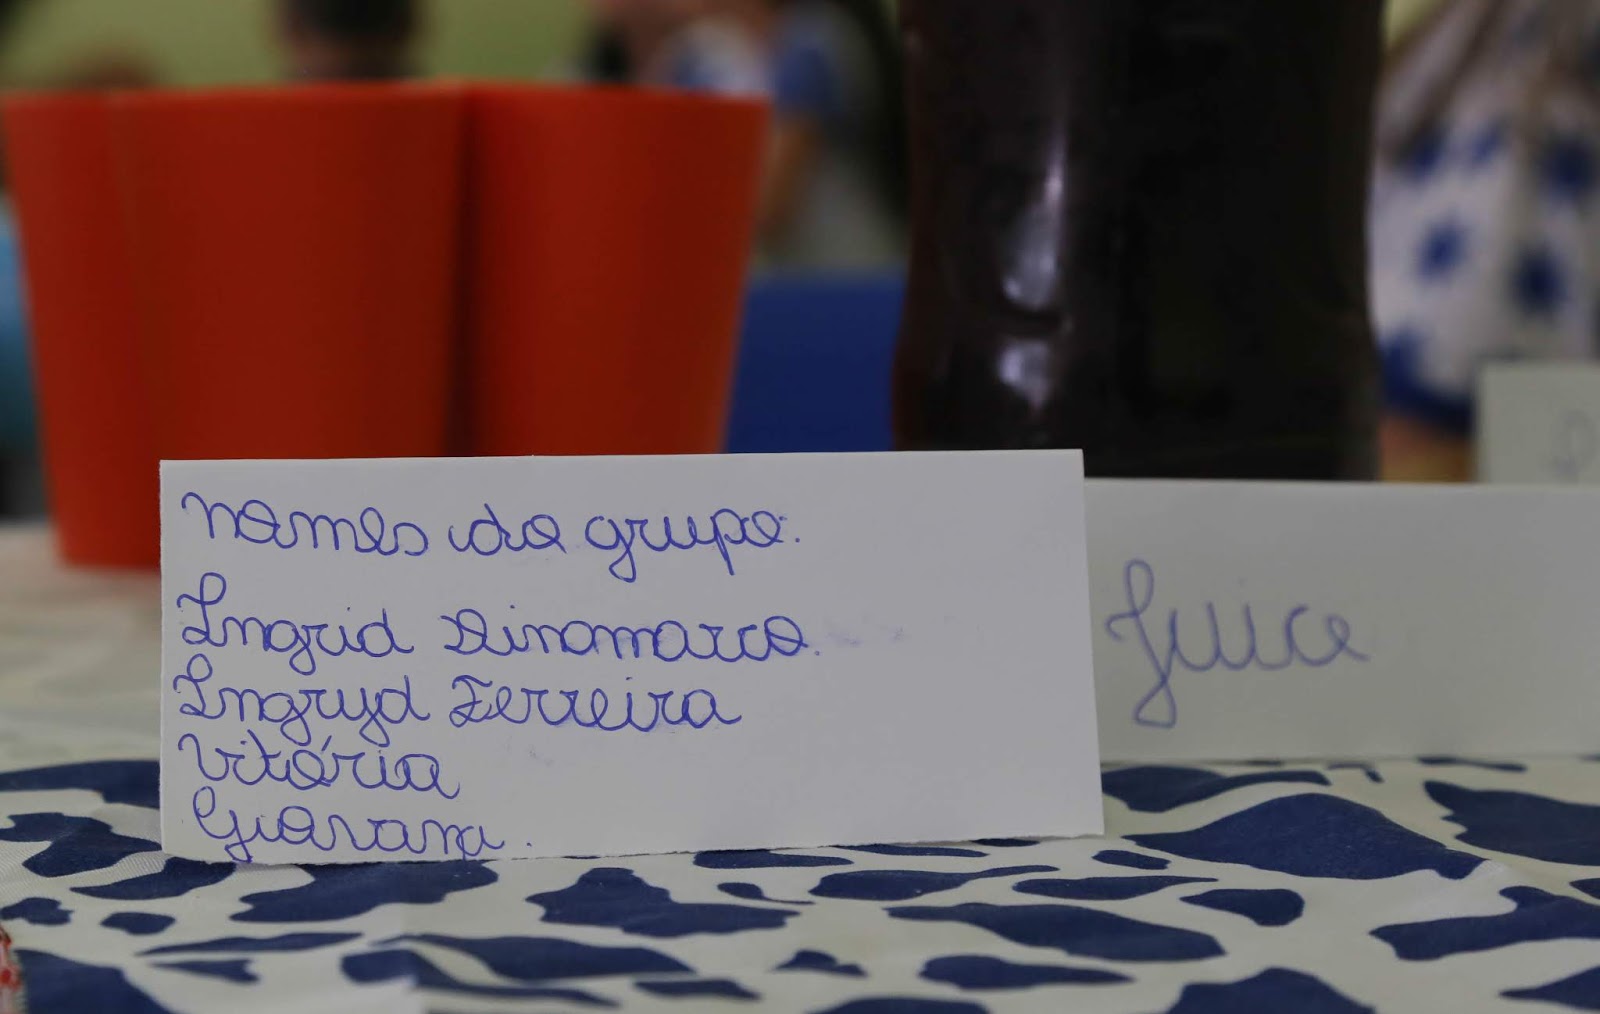 Nomes do grupo:
Ingrid Dinamarco.
Ingryd Ferreira
Vitória
Giovana.
Juice